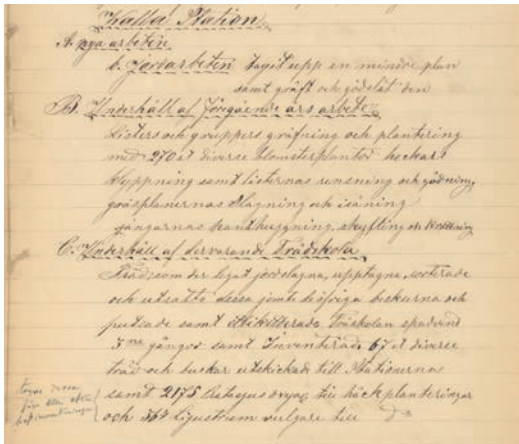 Kalla Station
A. nya arbeten
b. Jordarbeten tagit upp en mindre plan
samt gräft och gödslat den
B. Underhåll af föregående års arbete
Listers och gruppers gräfning och plantering
med 270 st diverse blomsterplantor häckars
klyppning samt listernas rensning och gödning,
gräsplanernas slagning och isåning
gångarnas kanthuggning, skyffling och krattning
C. Underhåll af dervarande Trädskola
Träd som der legat jordslagna, upptagna, sorterade
och utsatta dessa jemte de öfriga beskurna och
putsade samt etiketterade Trädskolan spadvänd
3 ne gångor samt Inventerad 67 st diverse
träd och buskar utskickade till Stationerna
samt 2175 Crataegus till häckplanteringar
och 760 Ligustrum vulgare till do